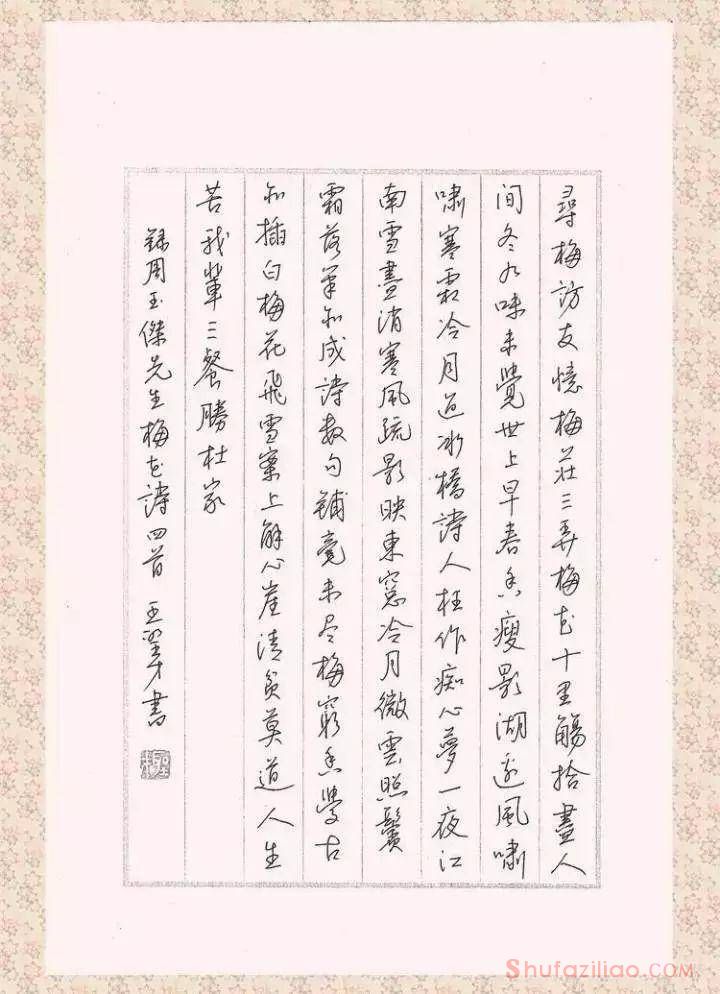 尋梅訪友憶梅莊三弄梅花十里觴拾盡人
間冬九味未覺世上早春香瘦影湖邊風嘯
嘯寒霜冷月冰橋詩人枉作痴心夢一夜江
南雪盡消寒風疏影映東窓冷月微雲照鬢
霜落筆初成詩數句鋪毫未尽梅窮香學古
初插白梅花飛雪寨上解心崖清貧莫道人生
苦我輩三餐勝杜家
錄周玉傑先生梅花詩四首 王書
Shufaziliao.com